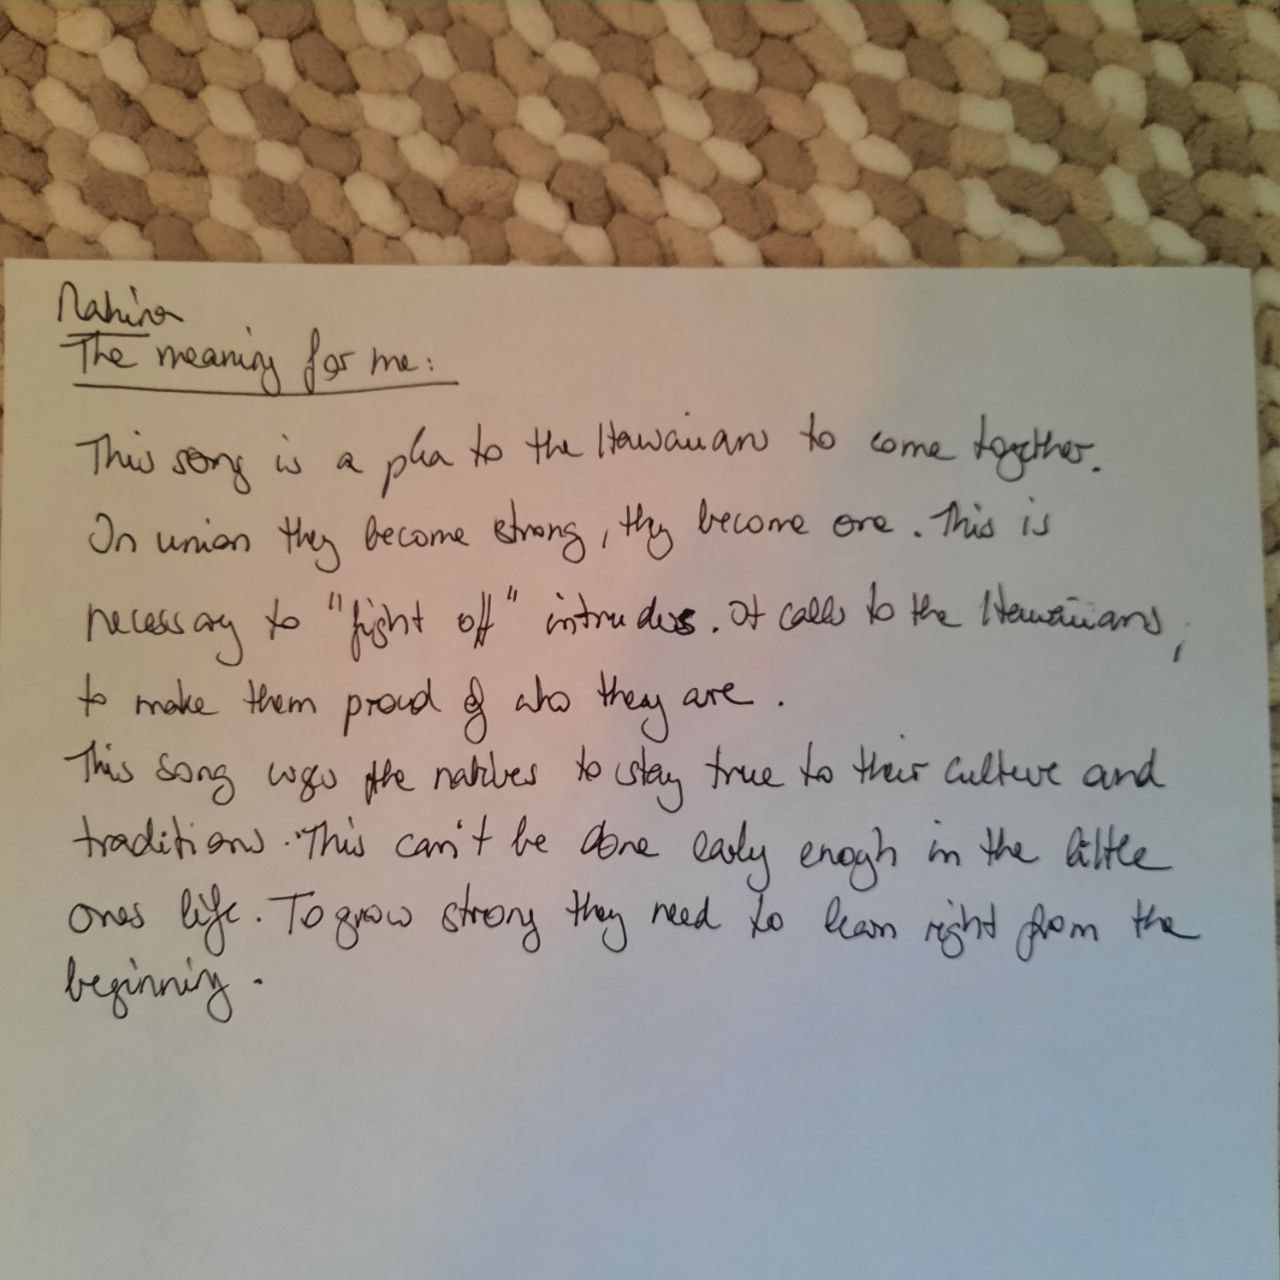 Mahina
The meaning for me:
This song is a plea to the Hawaiians to come together.
In union they become strong, they become one. This is
necessary to "fight off" intruders. It calls to the Hawaiians,
to make them proud of who they are.
This song urges the natives to stay true to their culture and
traditions. This can't be done early enogh in the little
ones life. To grow strong they need to learn right from the
beginning.